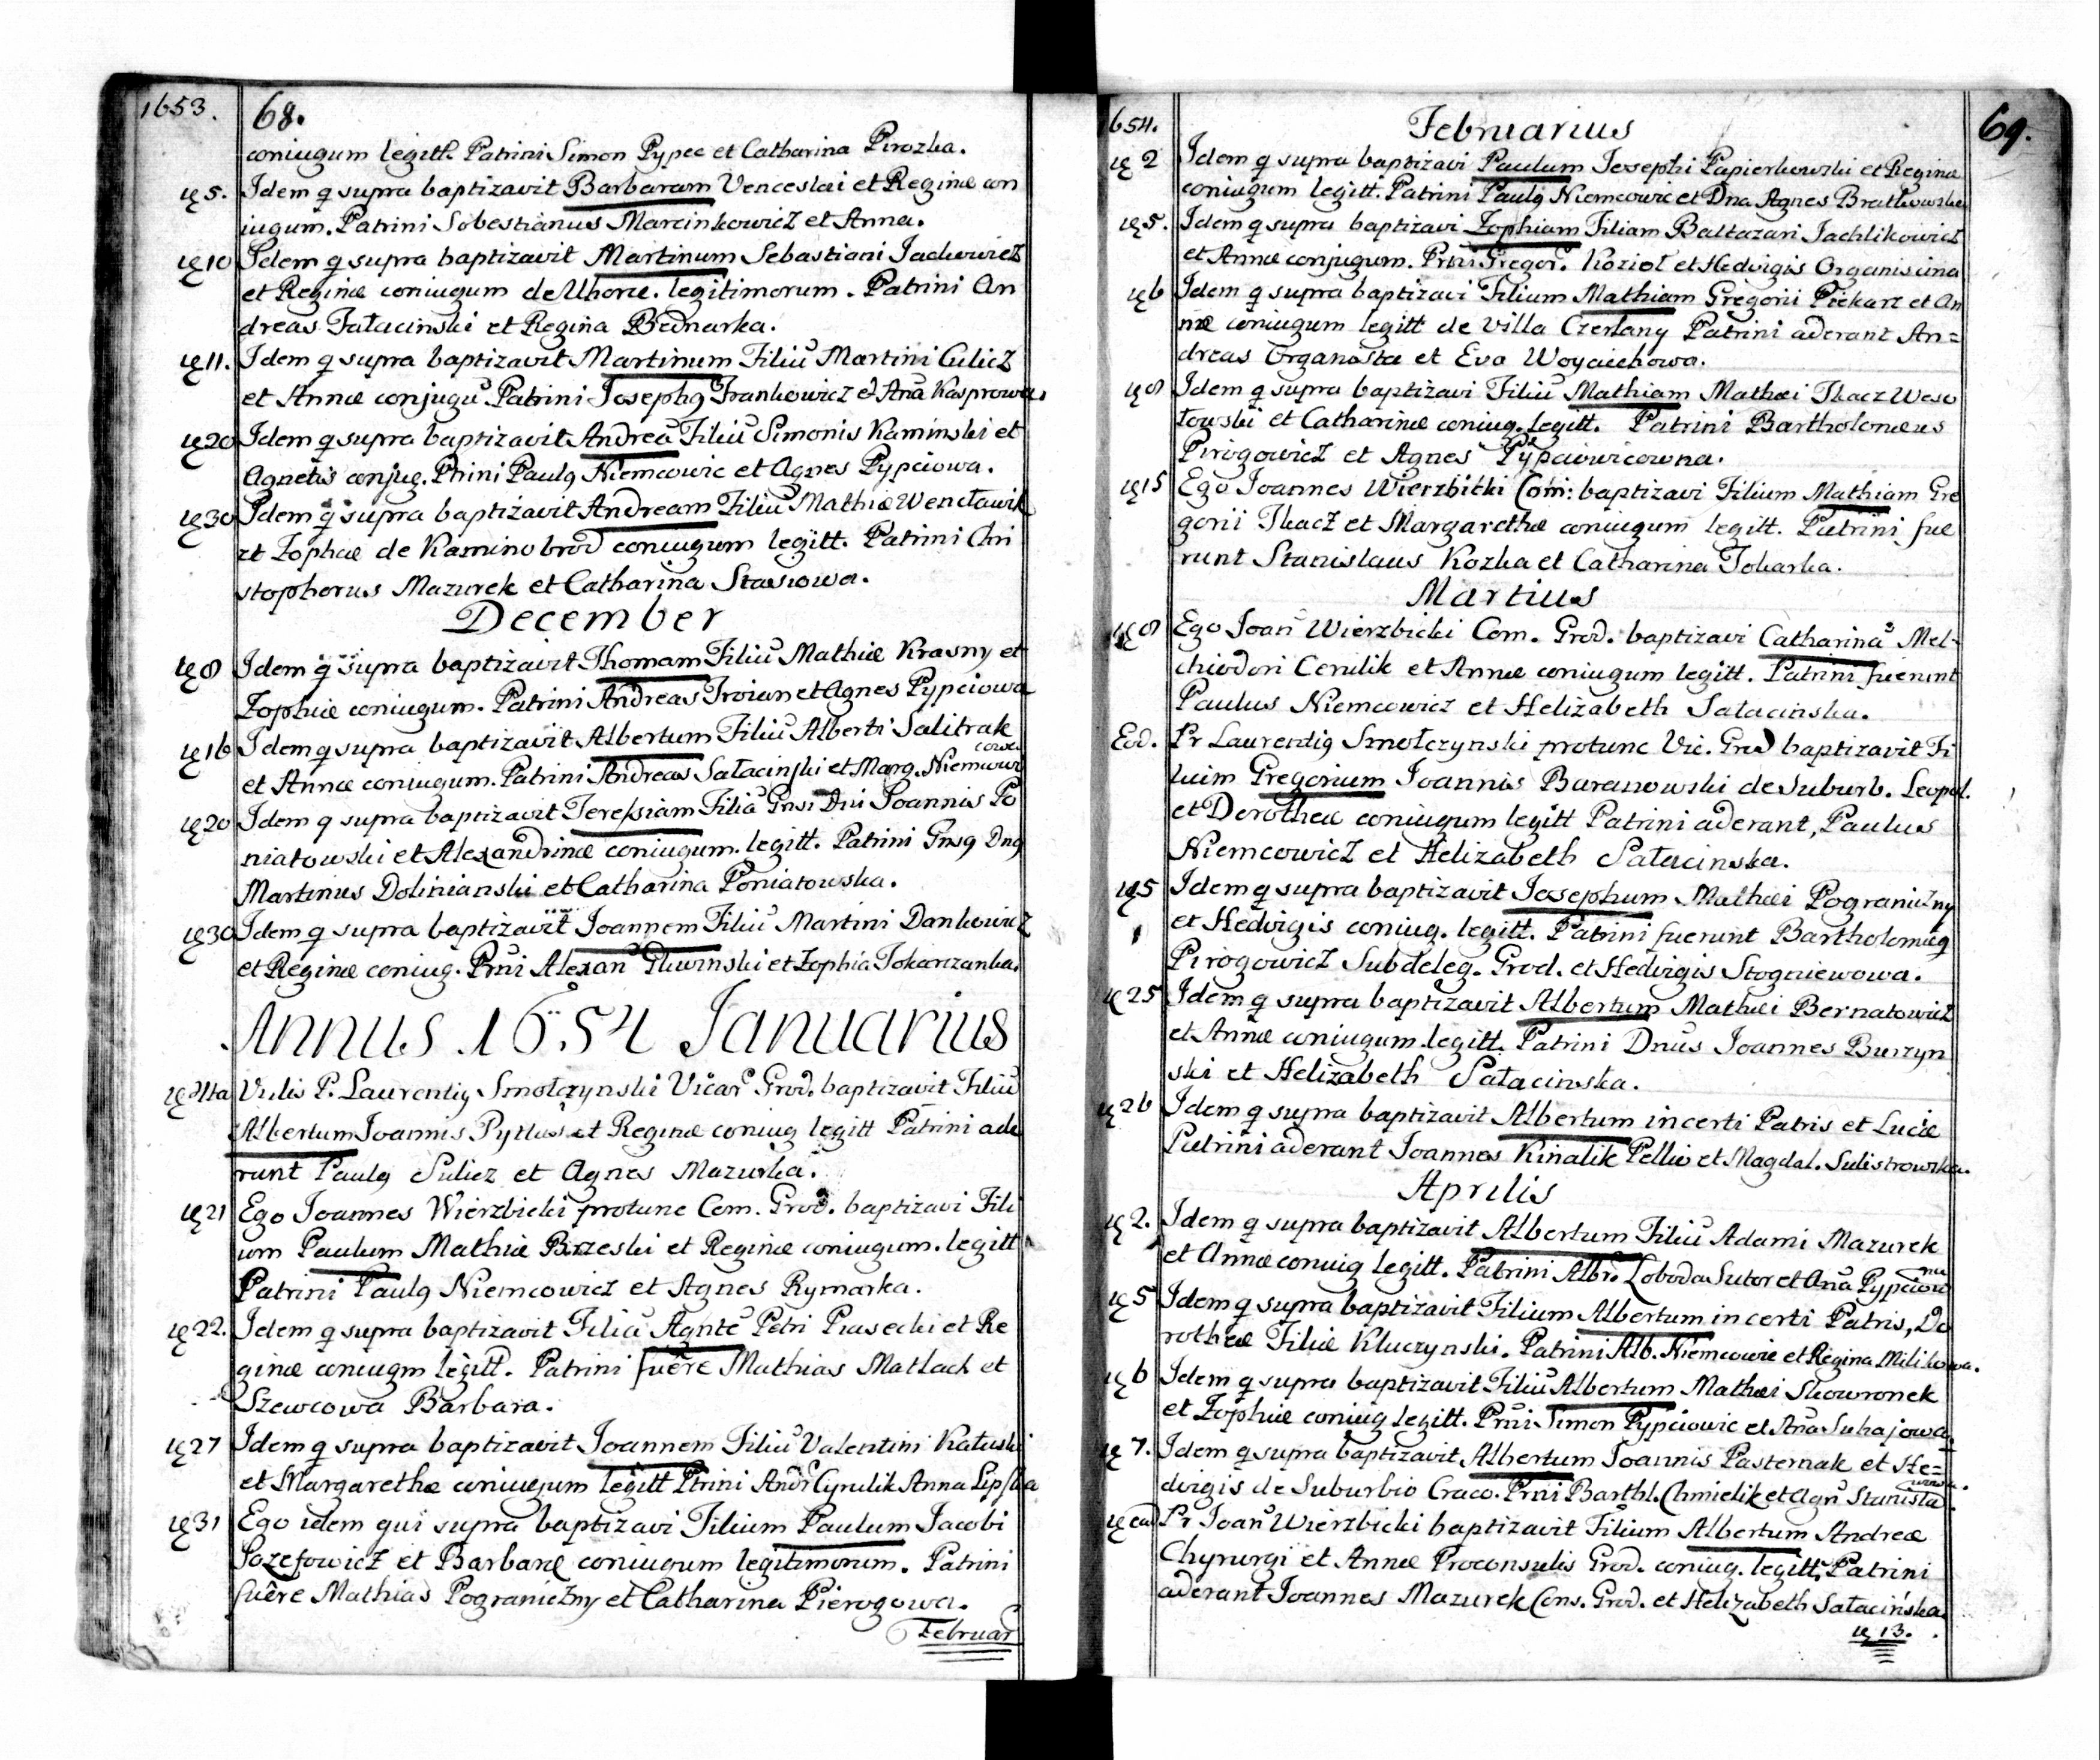 1653. 68.
coniugum legitt. Patrini Simon Pypec et Catharina Pirozka.
5. Idem q supra baptizavit Barbaram Venceslai et Reginæ con
iugum. Patrini Sobestianus Marcinkowicz et Anna.
10 Idem q supra baptizavit Martinum Sebastiani Jackowicz
et Reginæ coniugum de Uhorce. legitimorum. Patrini An
dreas Sałacinski et Regina Bednarka.
11. Idem q supra baptizavit Martinum Filiū Martini Culicz
et Annæ conjugū Patrini Josephq Frankowicz et Aña Kasprowa.
20 Idem q supra baptizavit Andreā Filiū Simonis Kaminski et
Agnetis conjug. Ptrini Paulq Niemcowic et Agnes Pypciowa.
30 Idem q supra baptizavit Andream Filiū Mathiæ Wencławik
et Zophiæ de Kaminobrod coniugum legitt. Patrini Chri
stopherus Mazurek et Catharina Stasiowa.
December
8 Idem q supra baptizavit Thomam Filiū Mathiæ Krasny et
Zophiæ coniugum. Patrini Andreas Troian et Agnes Pypciowa
16 Idem q supra baptizavit Albertum Filiū Alberti Salitrak
et Annæ coniugum. Patrini Andreas Sałacinski et Marg. Niemcowi
cowa
20 Idem q supra baptizavit Teressiam Filiā Gnsi Dni Joannis Po
niatowski et Alexandrinæ coniugum. legitt. Patrini Gnsq Dnq
Martinus Dolinianski et Catharina Poniatowska.
30 Idem q supra baptizavit Joannem Filiū Martini Dankowicz
et Reginæ coniug. Prni Alexan Gliwinski et Zophia Tokarzanka.
Annus 1654 Januarius
Vnlis P. Laurentiq Smołczynski Vicar Grod. baptizavit Filiū
Albertum Joannis Pytlus et Reginæ coniug legitt Patrini ade
runt Paulq Sulicz et Agnes Mazurka.
21 Ego Joannes Wierzbicki protunc Com. Grod. baptizavi Fili
um Paulum Mathiæ Brzeski et Reginæ coniugum. legitt
Patrini Paulq Niemcowicz et Agnes Rymarka.
22. Idem q supra baptizavit Filiā Agnte Petri Piasecki et Re
ginæ coniugm legitt. Patrini fuêre Mathias Matlach et
Szewcowa Barbara.
27 Idem q supra baptizavit Joannem Filiū Valentini Kałuski
et Margarethæ coniugum legitt Ptrini Andr Cyrulik Anna Lipska
31 Ego idem qui supra baptizavi Filium Paulum Jacobi
Jozefowicz et Barbaræ coniugum legitimorum. Patrini
fuêre Mathias Pogranicżny et Catharina Pierogowa.
Februar
654. Februarius 69.
2 Idem q supra baptizavi Paulum Josephi Papierkowski et Reginæ
coniugum legitt. Patrini Paulq Niemcowic et Dna Agnes Bratkowska
5. Idem q supra baptizavi Zophiam Filiam Baltazari Jachlikowicz
et Annæ conjugum. Prni Gregor. Kozioł et Hedvigis Organiscina
6 Idem q supra baptizavi Filium Mathiam Gregorii Piekarz et An
næ coniugum legitt de villa Czerlany Patrini aderant An=
dreas Organista et Eva Woyciechowa.
8 Idem q supra baptizavi Filiū Mathiam Mathæi Tkacz Weso
łowski et Catharinæ coniug. legitt. Patrini Bartholomæus
Pirogowicz et Agnes Pypciowicowna.
15 Ego Joannes Wierzbitki Com: baptizavi Filium Mathiam Gre
gorii Tkacz et Margarethæ coniugum legitt. Patrini fue
runt Stanislaus Kozka et Catharina Tokarka.
Martius
8 Ego Joan Wierzbicki Com. Grod. baptizavi Catharinā Mel-
chiodori Cerulik et Annæ coniugum legitt. Patrini fuerunt
Paulus Niemcowicz et Helizabeth Sałacinska.
Eod. Pr Laurentiq Smołczynski protunc Vic. Grod baptizavit Fi
lium Gregorium Joannis Baranowski de Suburb. Leopol.
et Dorotheæ coniugum legitt Patrini aderant, Paulus
Niemcowicz et Helizabeth Sałacinska.
15 Idem q supra baptizavit Josephum Mathæi Pogranicżny
et Hedvigis coniug. legitt. Patrini fuerunt Bartholomæq
Pirogowicz Subdeleg. Grod. et Hedvigis Stogniewowa.
25 Idem q supra baptizavit Albertum Mathæi Bernatowicz
et Annæ coniugum legitt. Patrini Dnus Joannes Burzyn
ski et Helizabeth Sałacinska.
26 Idem q supra baptizavit Albertum incerti Patris et Luciæ
Patrini aderant Joannes Kinalik Pellio et Magdal. Sulistrowska.
Aprilis
2. Idem q supra baptizavit Albertum Filiū Adami Mazurek
et Annæ coniug legitt. Patrini Albr. Łoboda Sutor et Aña Pypciow
na
5 Idem q supra baptizavit Filium Albertum incerti Patris, Do
rotheæ Filiæ Kluczynski. Patrini Alb. Niemcowic et Regina Milikowa.
6 Idem q supra baptizavit Filiū Albertum Mathæi Skowronek
et Zophiæ coniug legitt. Prni Simon Pypciowic et Aña Suhajowa
7. Idem q supra baptizavit Albertum Joannis Pasternak et He=
dvigis de Suburbio Craco. Prni Barthl. Chmielik et Agn Stanisła
wowa.
ead Pr Joan Wierzbicki baptizavit Filium Albertum Andreæ
Chyrurgi et Annæ Proconsulis Grod. coniug. legitt, Patrini
aderant Joannes Mazurek Cons. Grod. et Helizabeth Sałacińska.
13.